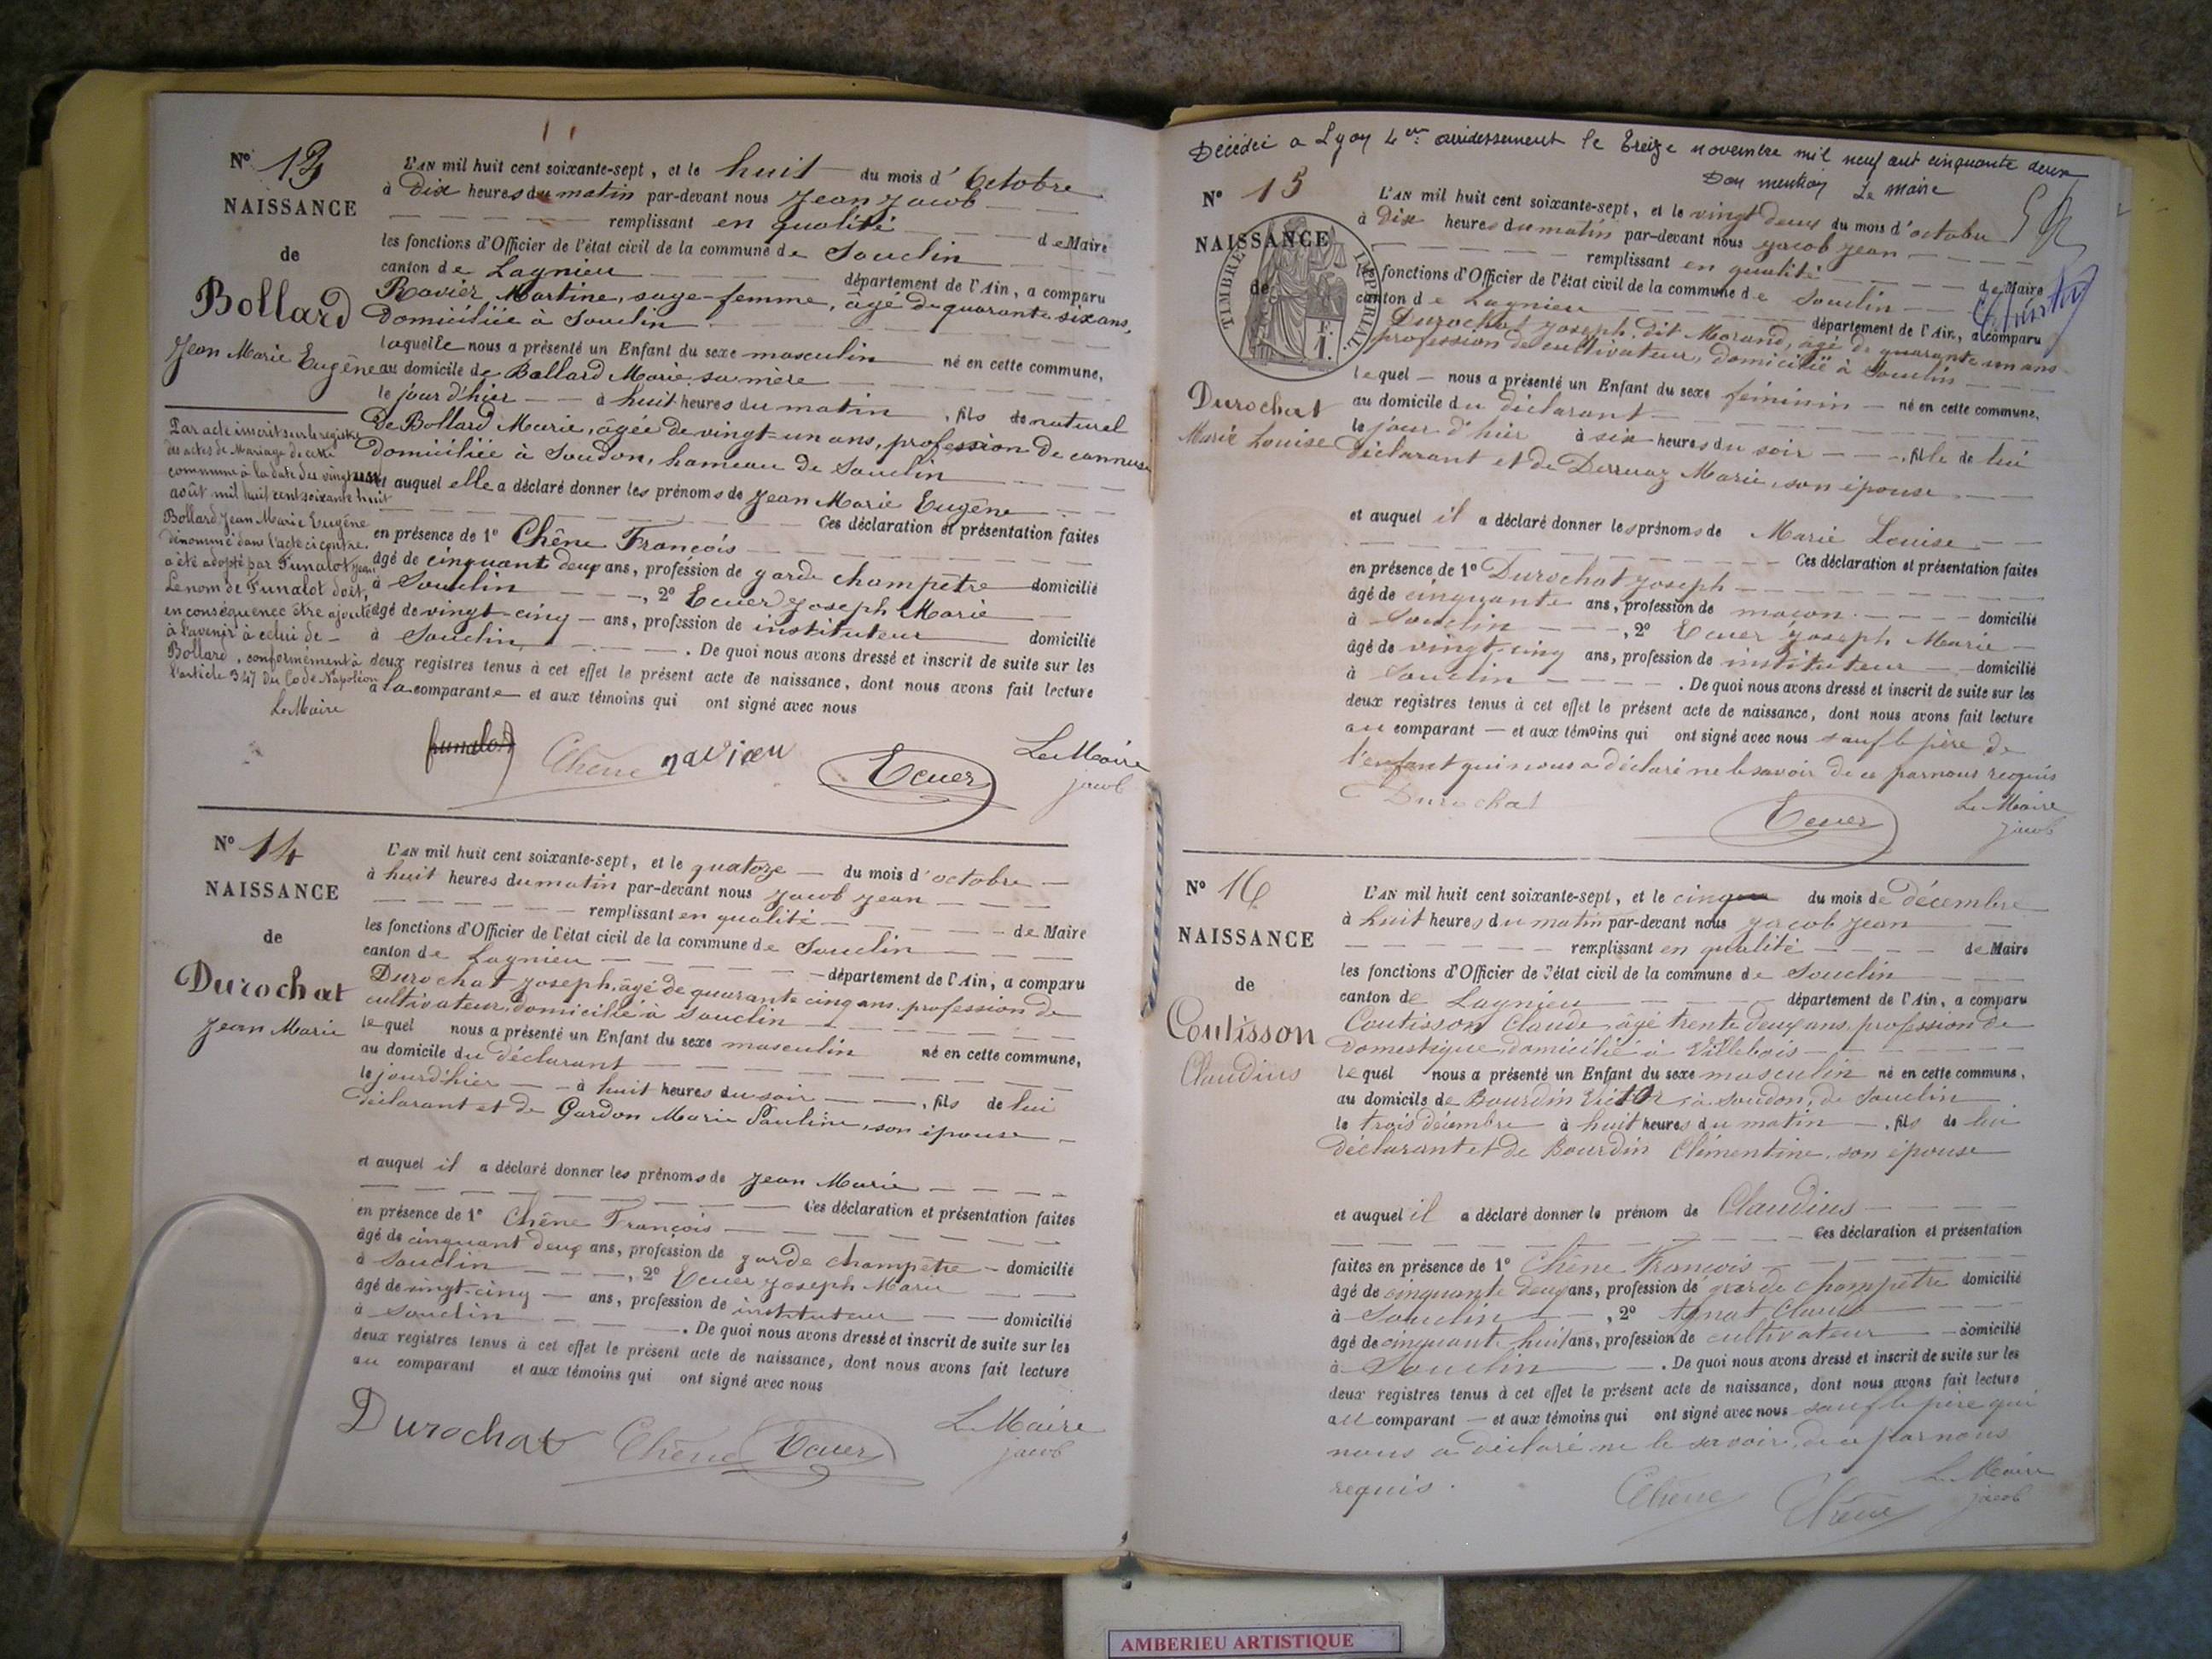 Nº 13
NAISSANCE
de
Bollard
Jean Marie Eugène
L'AN mil huit cent soixante-sept, et le huit du mois d'Octobre
à dix heures du matin par-devant nous Jean Jacob
remplissant en qualité de Maire
les fonctions d'Officier de l'état civil de la commune de Souclin
canton de Lagnieu département de l'Ain, a comparu
Ravier Martine, sage-femme, âgé de quarante six ans,
domiciliée à Souclin
laquelle nous a présenté un Enfant du sexe masculin né en cette commune,
au domicile de Bollard Marie, sa mère
le jour d'hier à huit heures du matin, fils de naturel
de Bollard Marie, âgée de vingt-un ans, profession de
domiciliée à Soudon, hameau de Souclin
et auquel elle a déclaré donner les prénoms de Jean Marie Eugène
Ces déclaration et présentation faites
en présence de 1º Chêne François
âgé de cinquant deux ans, profession de garde champêtre domicilié
à Souclin, 2º Ecuer Joseph Marie
âgé de vingt-cinq ans, profession de instituteur domicilié
à Souclin. De quoi nous avons dressé et inscrit de suite sur les
deux registres tenus à cet effet le présent acte de naissance, dont nous avons fait lecture
à la comparante et aux témoins qui ont signé avec nous
Par acte inscrit sur le registre
des actes de Mariage de cette
commune à la date du vingt
août mil huit cent soixante huit
Bollard Jean Marie Eugène
dénommé dans l'acte ci contre
a été adopté par Funalot Jean
Le nom de Funalot doit,
en conséquence être ajouté
à l'avenir à celui de
Bollard, conformément à
l'article 347 du Code Napoléon
Le Maire
Chêne ravier Ecuer Le Maire
jacob
Nº 14
NAISSANCE
de
Durochat
Jean Marie
L'AN mil huit cent soixante-sept, et le quatorze du mois d'octobre
à huit heures du matin par-devant nous Jacob Jean
remplissant en qualité de Maire
les fonctions d'Officier de l'état civil de la commune de Souclin
canton de Lagnieu département de l'Ain, a comparu
Durochat Joseph, âgé de quarante cinq ans, profession de
cultivateur, domicilié à Souclin
lequel nous a présenté un Enfant du sexe masculin né en cette commune,
au domicile du déclarant
le jour d'hier à huit heures du soir, fils de lui
déclarant et de Gardon Marie Pauline, son épouse
et auquel il a déclaré donner les prénoms de Jean Marie
Ces déclaration et présentation faites
en présence de 1º Chêne François
âgé de cinquant deux ans, profession de garde champêtre domicilié
à Souclin, 2º Ecuer Joseph Marie
âgé de vingt-cinq ans, profession de instituteur domicilié
à Souclin. De quoi nous avons dressé et inscrit de suite sur les
deux registres tenus à cet effet le présent acte de naissance, dont nous avons fait lecture
au comparant et aux témoins qui ont signé avec nous
Durochat Chêne Ecuer Le Maire
jacob
Décédée a Lyon 4em arrondissement le treize novembre mil neuf cent cinquante deux
Dont mention Le maire
Nº 15
NAISSANCE
de
TIMBRE IMPERIAL
Durochat
Marie Louise
L'AN mil huit cent soixante-sept, et le vingt deux du mois d'octobre
à dix heures du matin par-devant nous Jacob Jean
remplissant en qualité de Maire
les fonctions d'Officier de l'état civil de la commune de Souclin
canton de Lagnieu département de l'Ain, a comparu
Durochat Joseph, dit Morand, âgé de quarante un ans
profession de cultivateur, domicilié à Souclin
lequel nous a présenté un Enfant du sexe féminin né en cette commune,
au domicile du déclarant
le jour d'hier à six heures du soir, fille de lui
déclarant et de Derruaz Marie, son épouse
et auquel il a déclaré donner les prénoms de Marie Louise
Ces déclaration et présentation faites
en présence de 1º Durochat Joseph
âgé de cinquante ans, profession de maçon domicilié
à Souclin, 2º Ecuer Joseph Marie
âgé de vingt-cinq ans, profession de instituteur domicilié
à Souclin. De quoi nous avons dressé et inscrit de suite sur les
deux registres tenus à cet effet le présent acte de naissance, dont nous avons fait lecture
au comparant et aux témoins qui ont signé avec nous sauf le père de
l'enfant qui nous a déclaré ne le savoir de ce par nous requis
Durochat Ecuer Le Maire
jacob
Nº 16
NAISSANCE
de
Coutisson
Claudius
L'AN mil huit cent soixante-sept, et le cinq du mois de décembre
à huit heures du matin par-devant nous Jacob Jean
remplissant en qualité de Maire
les fonctions d'Officier de l'état civil de la commune de Souclin
canton de Lagnieu département de l'Ain, a comparu
Coutisson Claude, âgé trente deux ans, profession de
domestique, domicilié à Villebois
lequel nous a présenté un Enfant du sexe masculin né en cette commune,
au domicile de Bourdin Victor, à Soudon, de Souclin
le trois décembre à huit heures du matin, fils de lui
déclarant et de Bourdin Clémentine, son épouse
et auquel il a déclaré donner le prénom de Claudius
Ces déclaration et présentation
faites en présence de 1º Chêne François
âgé de cinquante deux ans, profession de garde champêtre domicilié
à Souclin, 2º Claude
âgé de cinquante huit ans, profession de cultivateur domicilié
à Souclin. De quoi nous avons dressé et inscrit de suite sur les
deux registres tenus à cet effet le présent acte de naissance, dont nous avons fait lecture
au comparant et aux témoins qui ont signé avec nous sauf le père qui
nous a déclaré ne le savoir, de ce par nous
requis.
Chêne Le Maire
jacob
AMBERIEU ARTISTIQUE